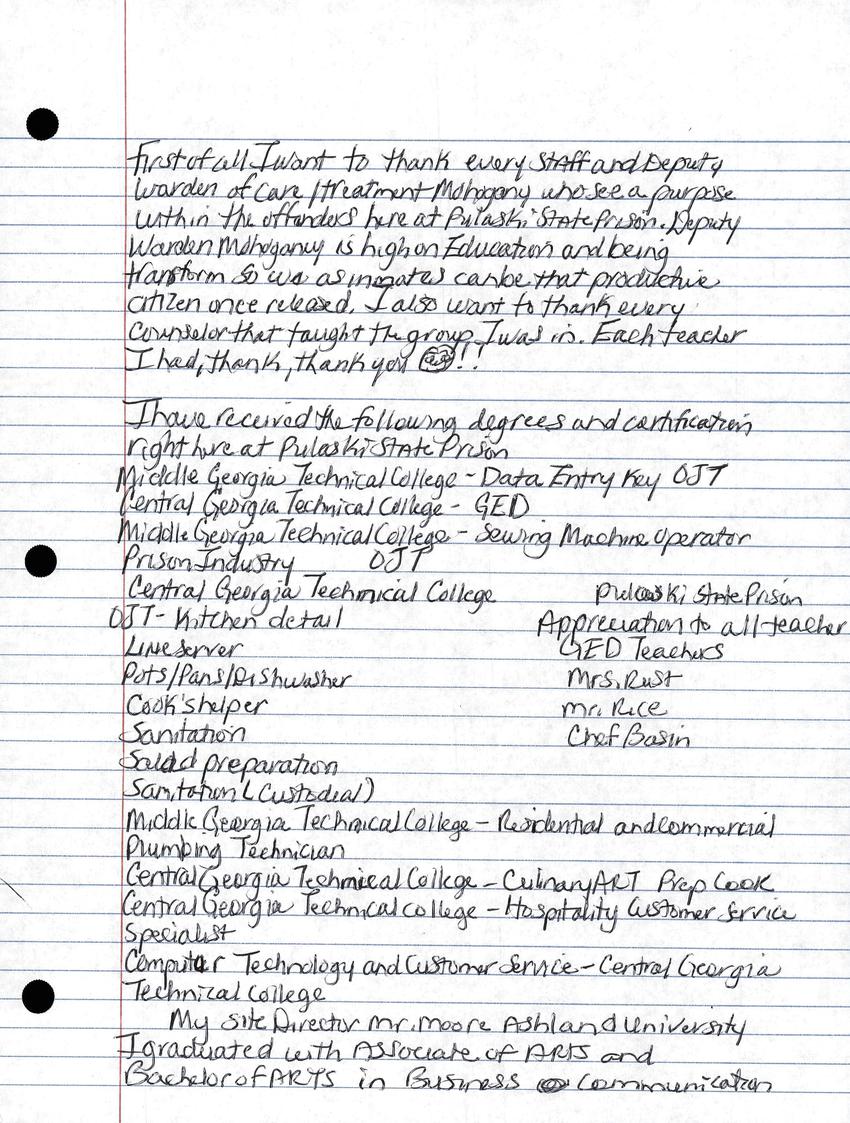 First of all I want to thank every STAff and Deputy
Warden of Care / treatment Mohogany who see a purpose
within the offenders here at Pulaski State Prison. Deputy
Warden Mohogany is high on Education and being
transform so we as inmates can be that productive
citizen once released. I also want to thank every
counselor that taught the group I was in. Each teacher
I had, thank, thank you !!
I have received the following degrees and certification
right here at Pulaski STATE Prison
Middle Georgia Technical College - Data Entry Key OJT
Central Georgia Technical College - GED
Middle Georgia Technical College - Sewing Machine Operator
Prison Industry OJT
Central Georgia Technical College
OJT - Kitchen detail
Line server
Pots/Pans/Dishwasher
Cook's helper
Sanitation
Salad preparation
Sanitation (Custodial)
Pulaski State Prison
Appreciation to all teacher
GED Teachers
Mrs. Rust
Mr. Rice
Chef Basin
Middle Georgia Technical College - Residential and commercial
Plumbing Technician
Central Georgia Technical College - Culinary ART Prep Cook
Central Georgia Technical college - Hospitality Customer Service
Specialist
Computer Technology and Customer Service - Central Georgia
Technical College
My Site Director Mr. Moore Ashland University
I graduated with Associate of ARTS and
Bachelor of ARTS in Business Communication